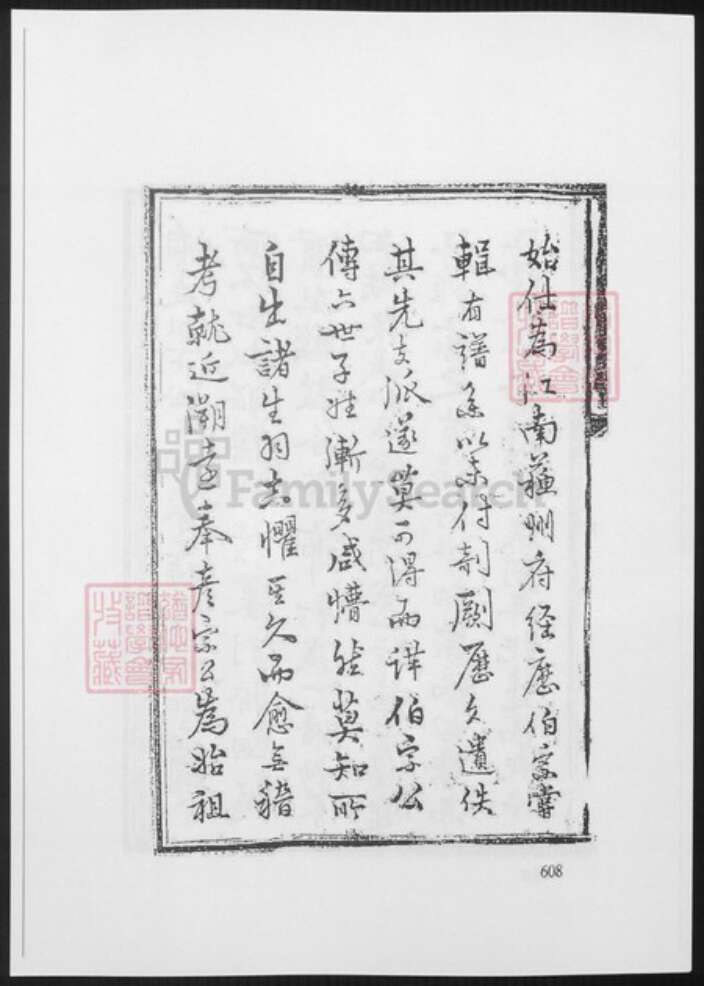 始仕為江南蘇州府経歴伯宗嘗
輯有譜系以未付剞劂歷久遺佚
其先支派遂莫可得而詳伯宗公
傳六世子姓漸多咸懵然莫知所
自生諸生羽去懼其久而愈無稽
考就近溯遠奉彦宗公為始祖
譜學會
特藏
FamilySearch
608